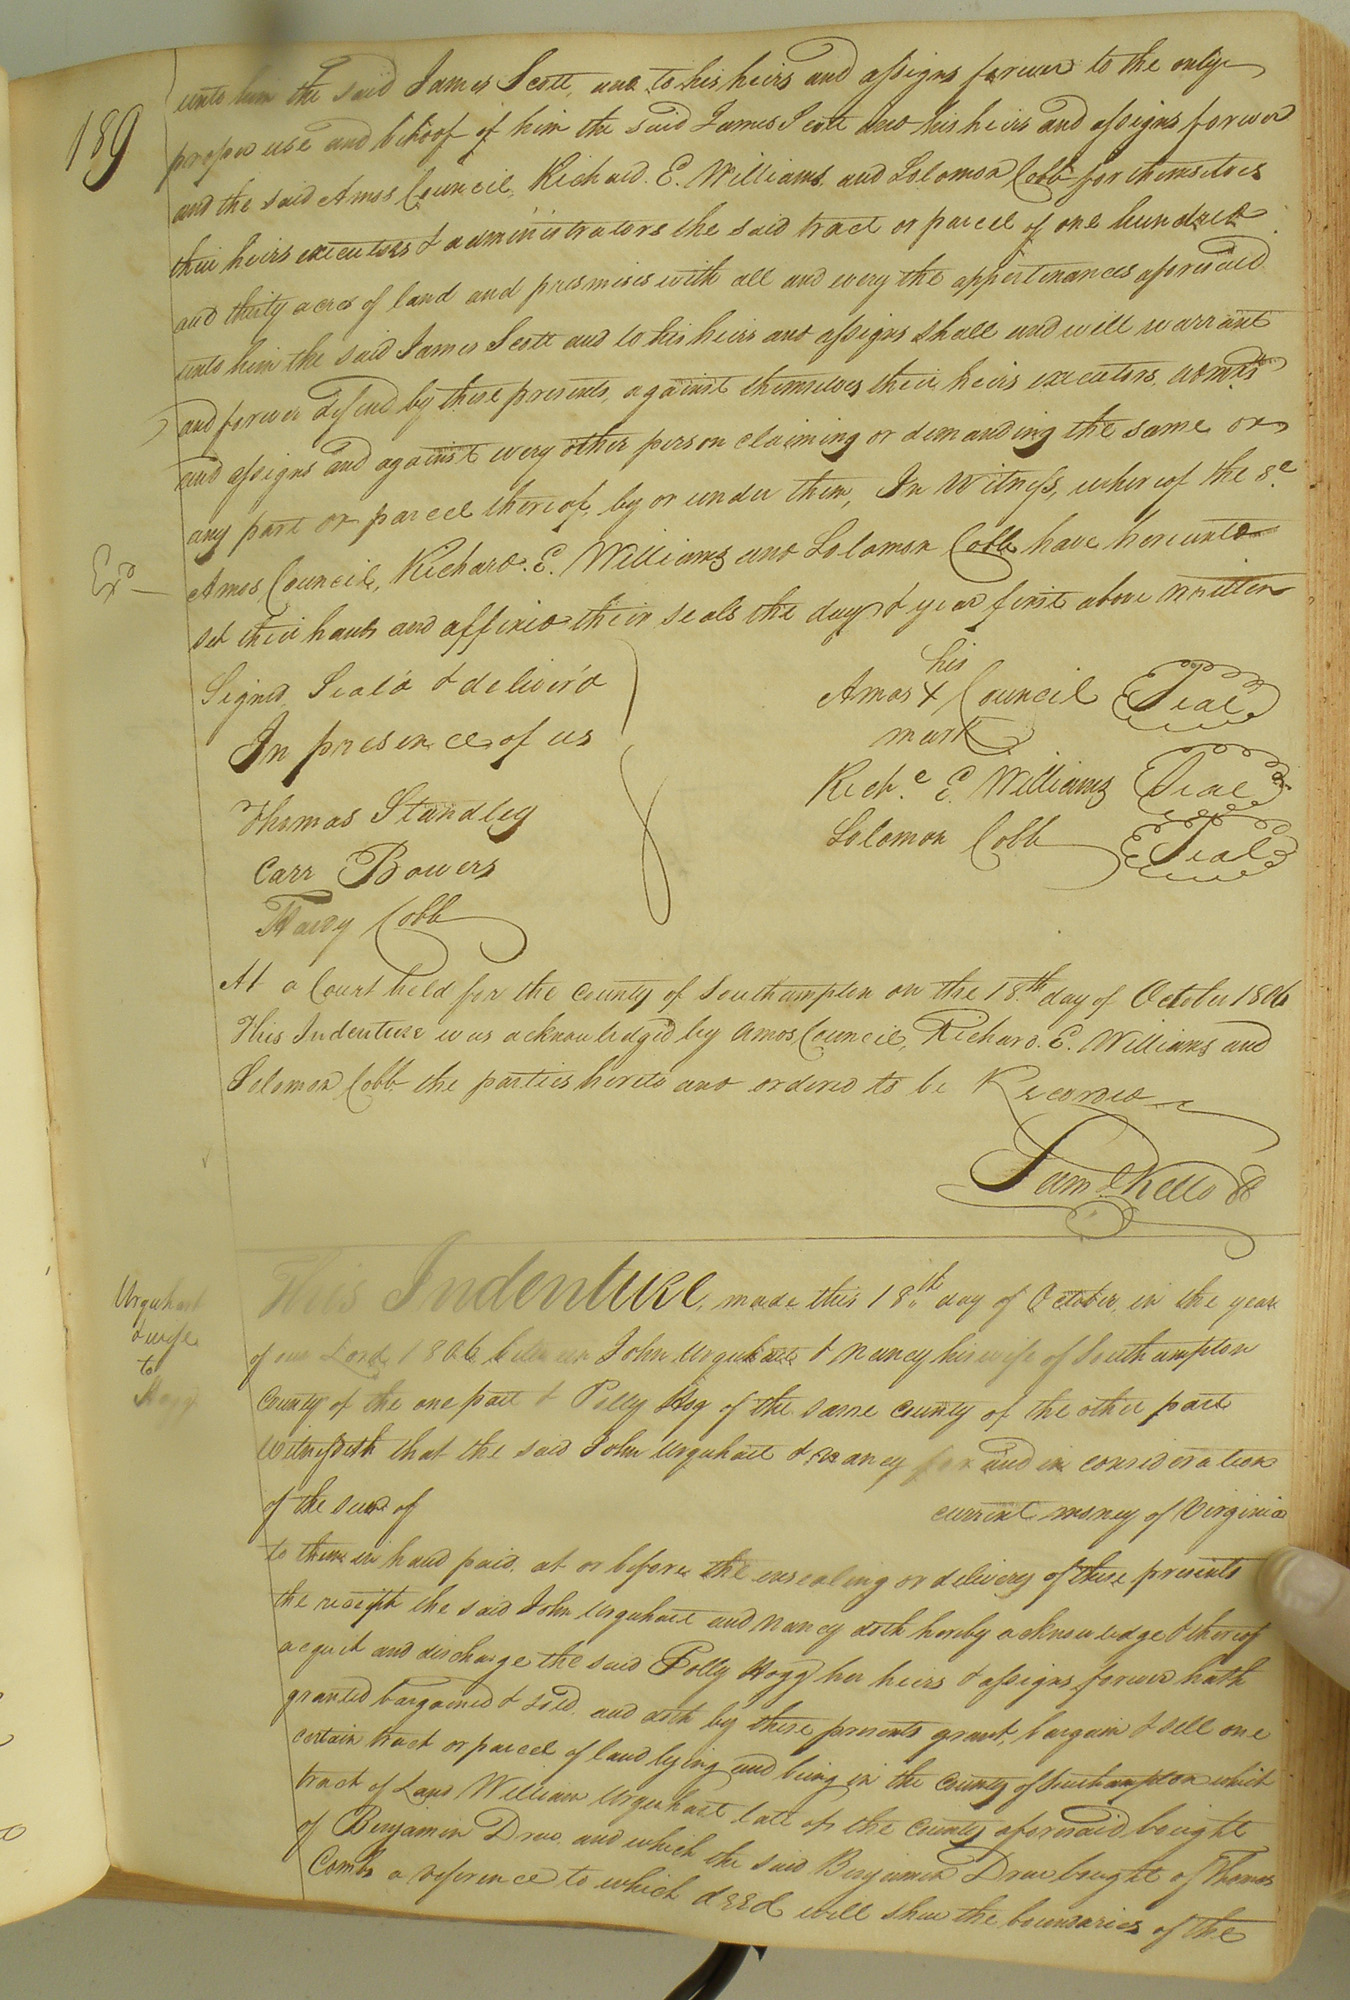 189
unto him the said James Scott, and to his heirs and assigns forever to the only
proper use and behoof of him the said James Scott and his heirs and assigns forever
and the said Amos Council, Richard. E. Williams, and Solomon Cobb for themselves
their heirs executors & administrators the said tract or parcel of one hundred
and thirty acres of land and premises with all and every the appertinances aforesaid
unto him the said James Scott and to his heirs and assigns shall and will warrant
and forever defend by these presents, against themselves their heirs executors, admrs
and assigns and against every other person claiming or demanding the same or
any part or parcel thereof, by or under them, In Witness, whereof the sd
Exd
Amos Council, Richard. E. Williams and Solomon Cobb have hereunto
set their hands and affixed their seals the day & year first above written
Signed Seal'd & deliver'd
In presence of us
Thomas Standley
Carr Bowers
Hardy Cobb
his
Amos X Council Seal
mark
Richd E. Williams Seal
Solomon Cobb Seal
At a Court held for the county of Southampton on the 18th day of October 1806
This Indenture was acknowledged by Amos Council, Richard. E. Williams and
Solomon Cobb the parties hereto and ordered to be Recorded
Saml Kello
Urquhart
& wife
to
Hogg
This Indenture, made this 18th day of October, in the year
of our Lord 1806 between John Urquhart & Nancy his wife of Southampton
County of the one part & Polly Hog of the same county of the other part
Witnesseth that the said John Urquhart & Nancy for and in consideration
of the sum of current money of Virginia
to them in hand paid, at or before the ensealing or delivery of these presents
the receipt the said John Urquhart and Nancy doth hereby acknowledge & thereof
acquit and discharge the said Polly Hogg her heirs & assigns forever hath
granted bargained & sold, and doth by these presents grant, bargain & sell one
certain tract or parcel of land lying and being in the county of Southampton which
tract of Land William Urquhart late of the County aforesaid bought
of Benjamin Drew, and which the said Benjamin Drew bought of Thomas
Combs a reference to which deed will shew the boundaries of the